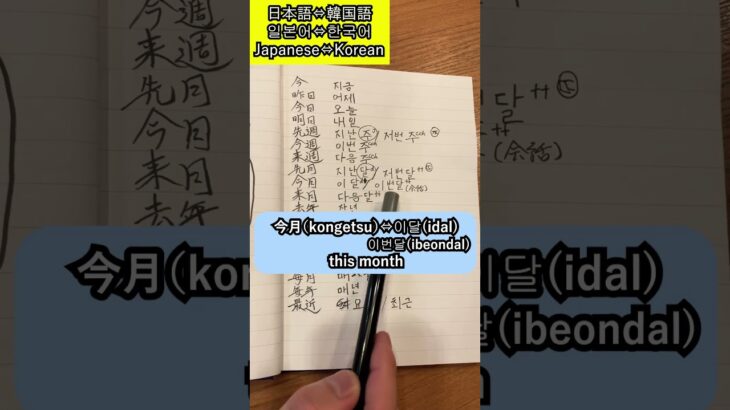 日本語⇔韓国語
일본어⇔한국어
Japanese⇔Korean
今 지금
昨日 어제
今日 오늘
明日 내일
先週 지난 주 / 저번 주
今週 이번 주
来週 다음 주
先月 지난 달 / 저번 달
今月 이 달 / 이번달 (会話)
来月 다음 달
去年 작년
今月(kongetsu)⇔이달(idal)
이번달(ibeondal)
this month
毎月
毎年 매년
最近 요 / 최근
来週
先月
今月
来月
去年
今月(kon
달
(会話)
이달(idal)
달(ibeondal)
th